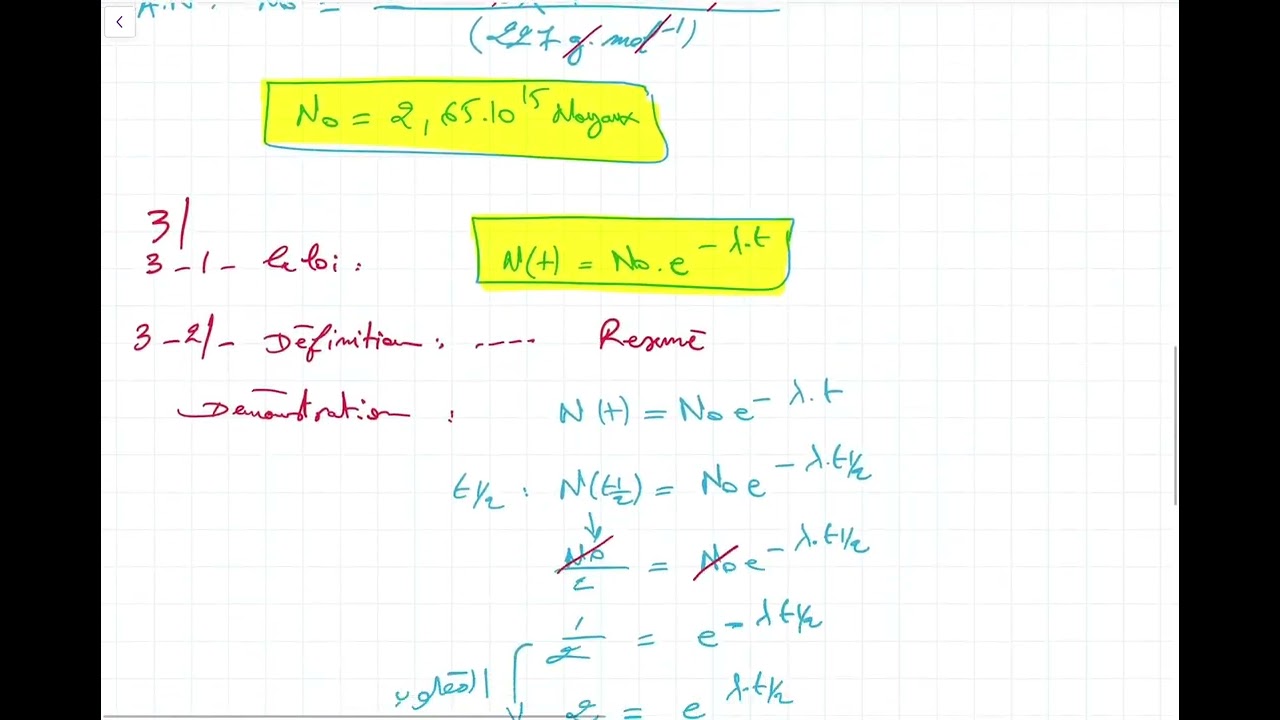 A.N : N₀ =
(227 g. mol⁻¹)
N₀ = 2,65.10¹⁵ Noyaux
3/
3-1- la loi : N(t) = N₀.e^-λ.t
3-2/- Définition : ---- Resumé
Démonstration : N(t) = N₀ e^-λ.t
t1/2 : N(t1/2) = N₀ e^-λ.t1/2
N₀/2 = N₀ e^-λ.t1/2
1/2 = e^-λ t1/2
2 = e^λ.t1/2